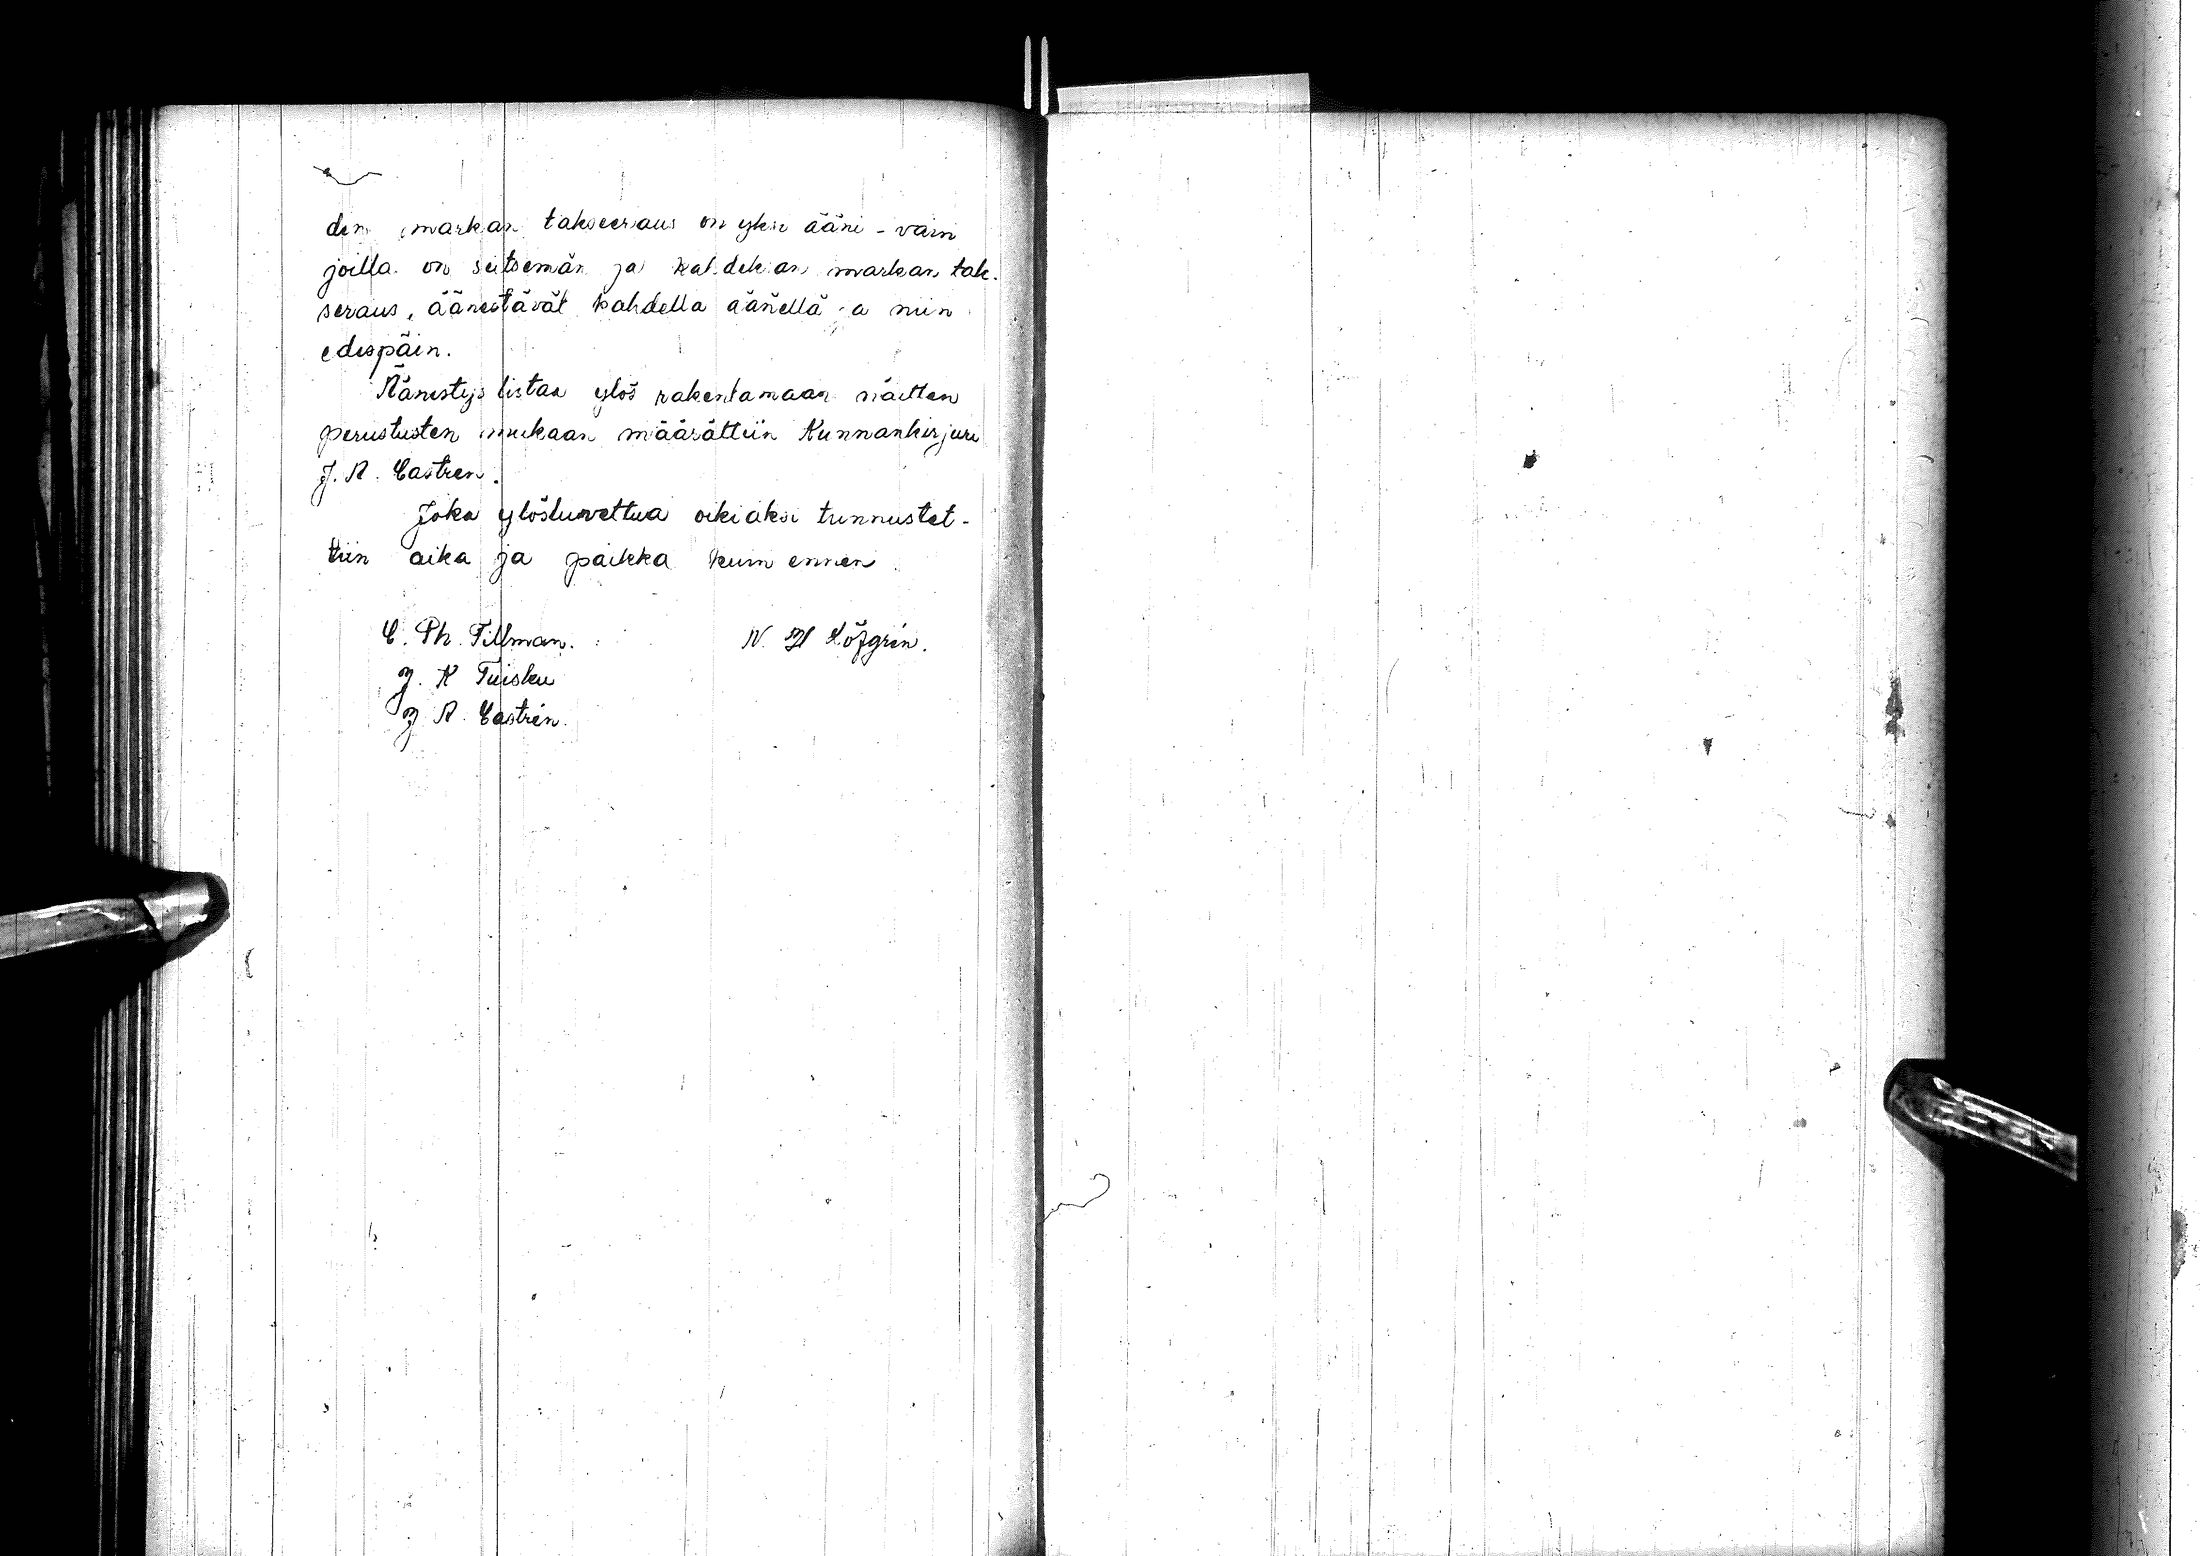 den markan takseeraus on yksi ääni - vain
joilla on seitsemän ja kahdeksan markan tak-
seraus, äänestävät kahdella äänellä ja niin
edespäin.
Äänestys listaa ylös rakentamaan näitten
perustusten mukaan määrättiin Kunnankirjuri
J. A. Castren.
Joka ylösluvettua oikiaksi tunnustet-
tiin aika ja paikka kuin ennen
C. Ph. Tillman. N. H Löfgrén.
J. K Tuisku
J A. Castrén.